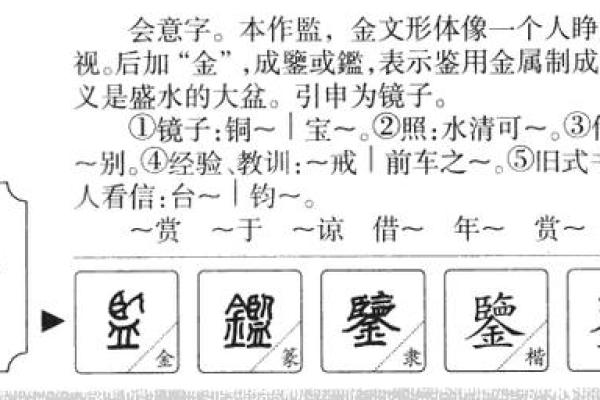 会意字。本作監，金文形体像一个人睁
视。后加“金”,成鑒或鑑,表示鉴用金属制成
义是盛水的大盆。引申为镜子。
①镜子:铜～｜宝～。②照:水清可～。③
～别。④经验、教训:～戒｜前车之～。⑤旧式
人看信:台～｜钧～。
～赏 ～于 ～谅 借～ 年～ 赏～
▶ 監 金 鑑 篆 鑒 隶 鑒 楷